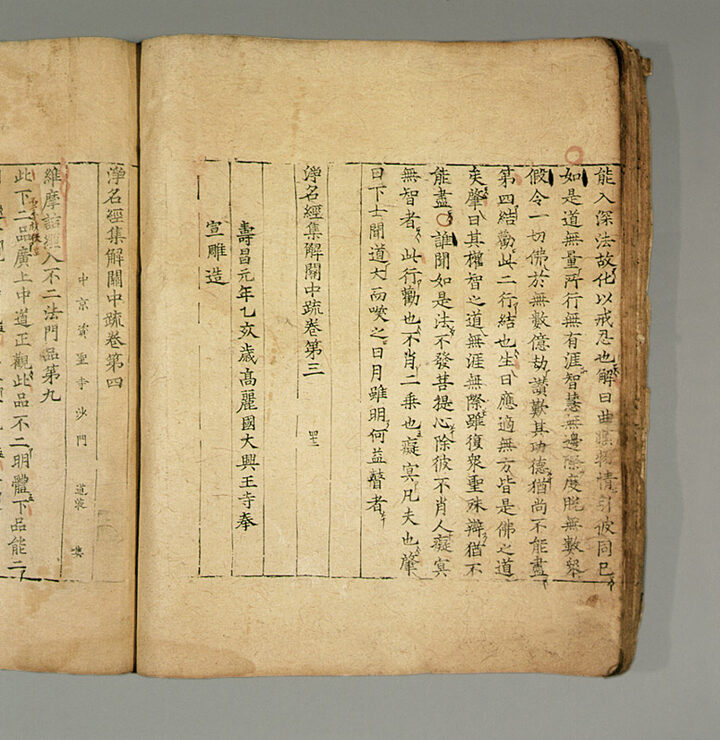 能入深法故化以戒忍也解曰曲從物情引彼同已
如是道無量所行無有涯智慧無邊際度脫無數衆
假令一切佛於無數億劫讚歎其功德猶尚不能盡
第四結勸此二行結也生曰應適無方皆是佛之道
矣肇曰其權智之道無涯無際雖復衆聖殊辯猶不
能盡誰聞如是法不發菩提心除彼不肖人癡冥
無智者此行勸也不肖二乘也癡冥凡夫也肇
曰下士聞道大而咲之日月雖明何益瞽者
淨名經集解關中疏卷第三
壽昌元年乙亥歲高麗國大興王寺奉
宣雕造
淨名經集解關中疏卷第四
中京資聖寺沙門 道液 集
維摩詰經入不二法門品第九
此下二品廣上中道正觀此品不二明體下品能二